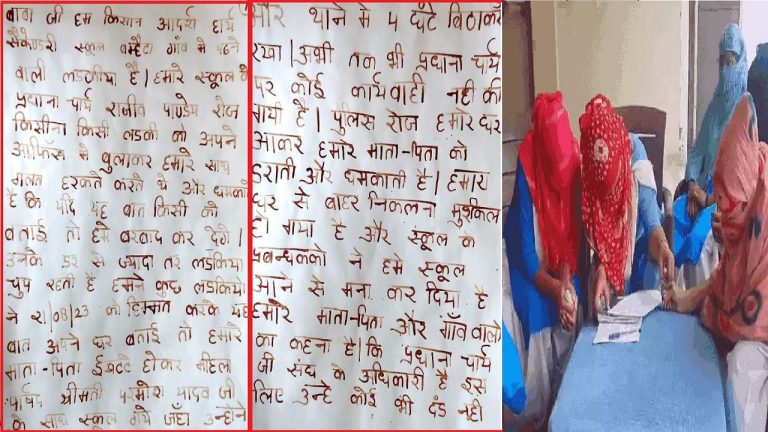 बाबा जी हम किसान आदर्श हायर
सैकेण्डरी स्कूल बम्हेटा गाँव मे पढने
वाली लडकीया है। हमारे स्कूल के
प्रधाना-चार्य राजीव पाण्डेय रोज
किसीना किसी लडकी को अपने
आफिस मे बुलाकर हमारे साथ
गलत हरकते करते थे और धमकाते
है कि यदि यह बात किसी को
बताई तो हमे बरबाद कर देगे।
उनके डर से ज्यादा तर लडकिया
चुप रहती है हमने कुछ लडकिया
ने 21/08/23 को हिम्मत करके यह
बात अपने घर बताई तो हमारे
माता-पिता ईकटटे होकर महिला
पार्षद श्रीमती परमोश यादव जी
के साथ स्कूल गये जँहा उन्होने
और थाने मे 4 घंटे बिठाकर
रखा। अभी तक भी प्रधाना चार्य
पर कोई कार्यवाही नही की
गयी है। पुलिस रोज हमारे घर
आकर हमारे माता-पिता को
डराती और धमकाती है। हमारा
घर से बाहर निकलना मुश्किल
हो गया है और स्कूल के
प्रबन्धकको ने हमे स्कूल
आने से मना कर दिया है
हमारे माता-पिता और गाँव वालो
का कहना है। कि प्रधाना चार्य
जी संघ के अधिकारी है इस
लिए उन्हे कोई भी दंड नही